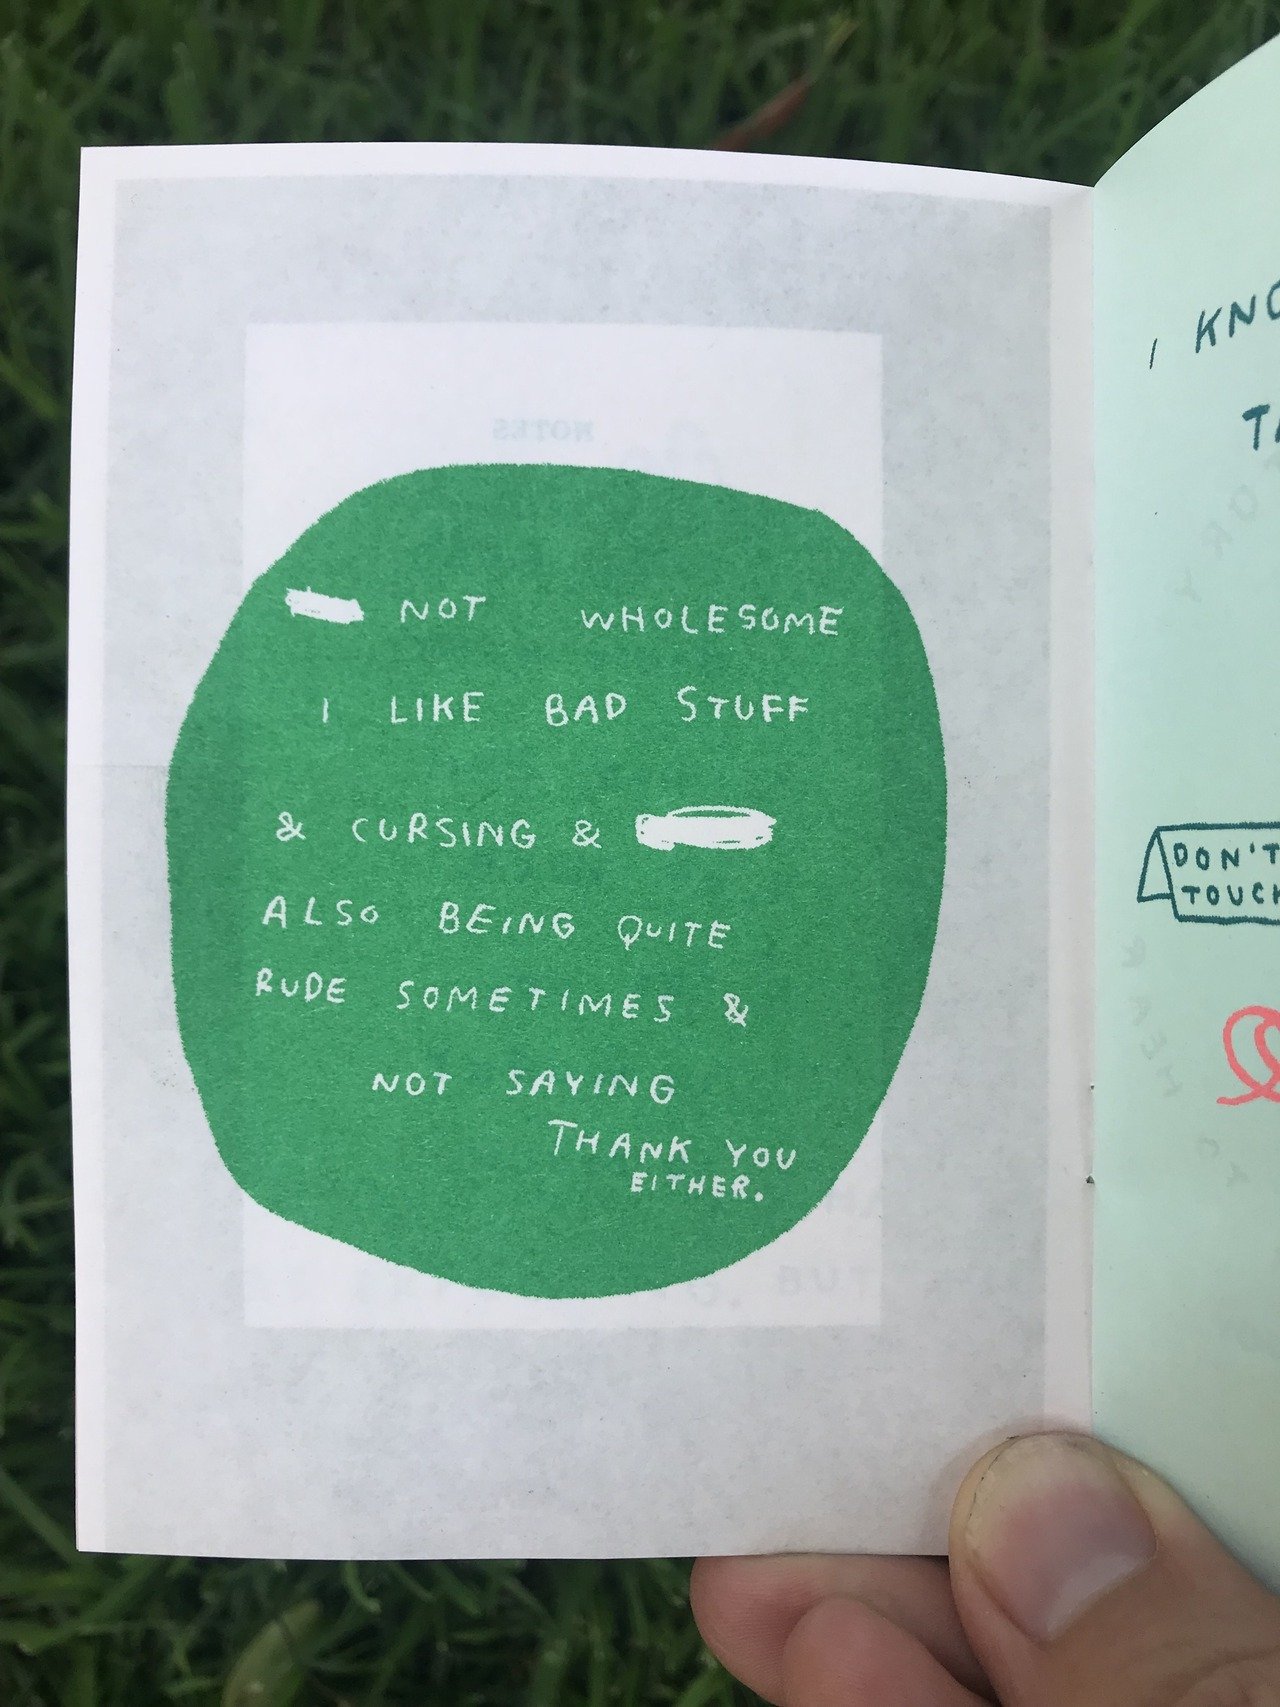 NOTES
NOT WHOLESOME
I LIKE BAD STUFF
& CURSING &
ALSO BEING QUITE
RUDE SOMETIMES &
NOT SAYING
THANK YOU
EITHER.
I
DON'T
TOUCH